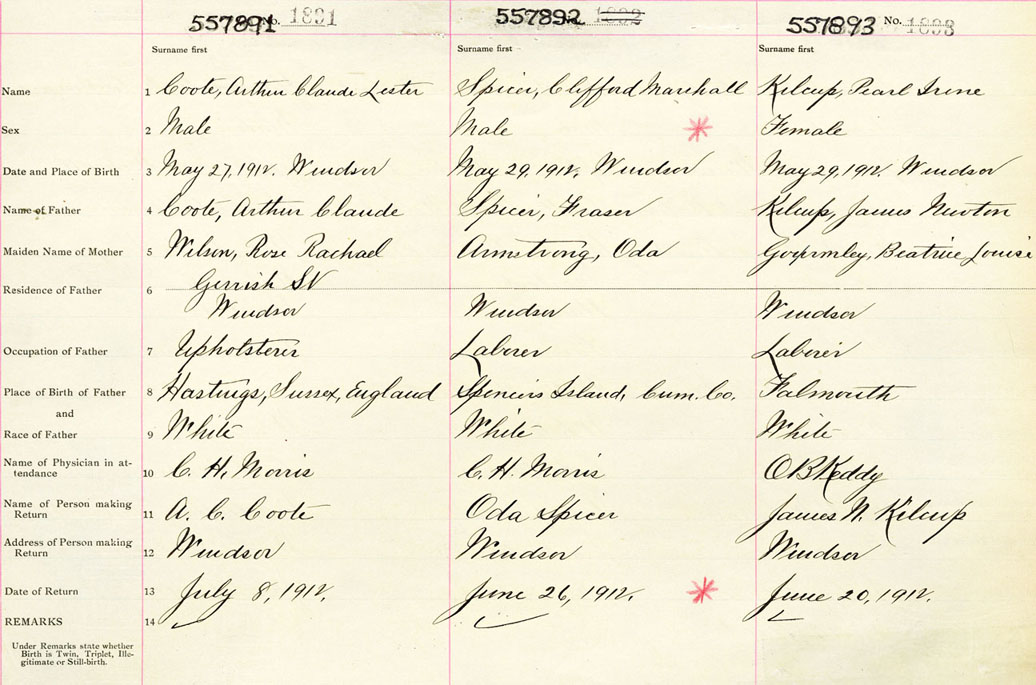 557891 No. 1891 557892 No. 1892 557893 No. 1893
Surname first Surname first Surname first
Name 1 Coote, Arthur Claude Lester Spicer, Clifford Marshall Kilcup, Pearl Irene
Sex 2 Male Male Female
Date and Place of Birth 3 May 27, 1912. Windsor May 29, 1912. Windsor May 29, 1912 Windsor
Name of Father 4 Coote, Arthur Claude Spicer, Fraser Kilcup, James Newton
Maiden Name of Mother 5 Wilson, Rose Rachael Armstrong, Oda Beatrice Louise
Gerrish St
Residence of Father 6 Windsor Windsor Windsor
Occupation of Father 7 Upholsterer Laborer Laborer
Place of Birth of Father 8 Hastings, Sussex, England Spencers Island, Cum. Co. Falmouth
and
Race of Father 9 White White White
Name of Physician in at-
tendance 10 C. H. Morris C. H. Morris O B Keddy
Name of Person making
Return 11 A. C. Coote Oda Spicer James N. Kilcup
Address of Person making
Return 12 Windsor Windsor Windsor
Date of Return 13 July 8, 1912. June 26, 1912. June 20, 1912.
REMARKS 14
Under Remarks state whether
Birth is Twin, Triplet, Ille-
gitimate or Still-birth.